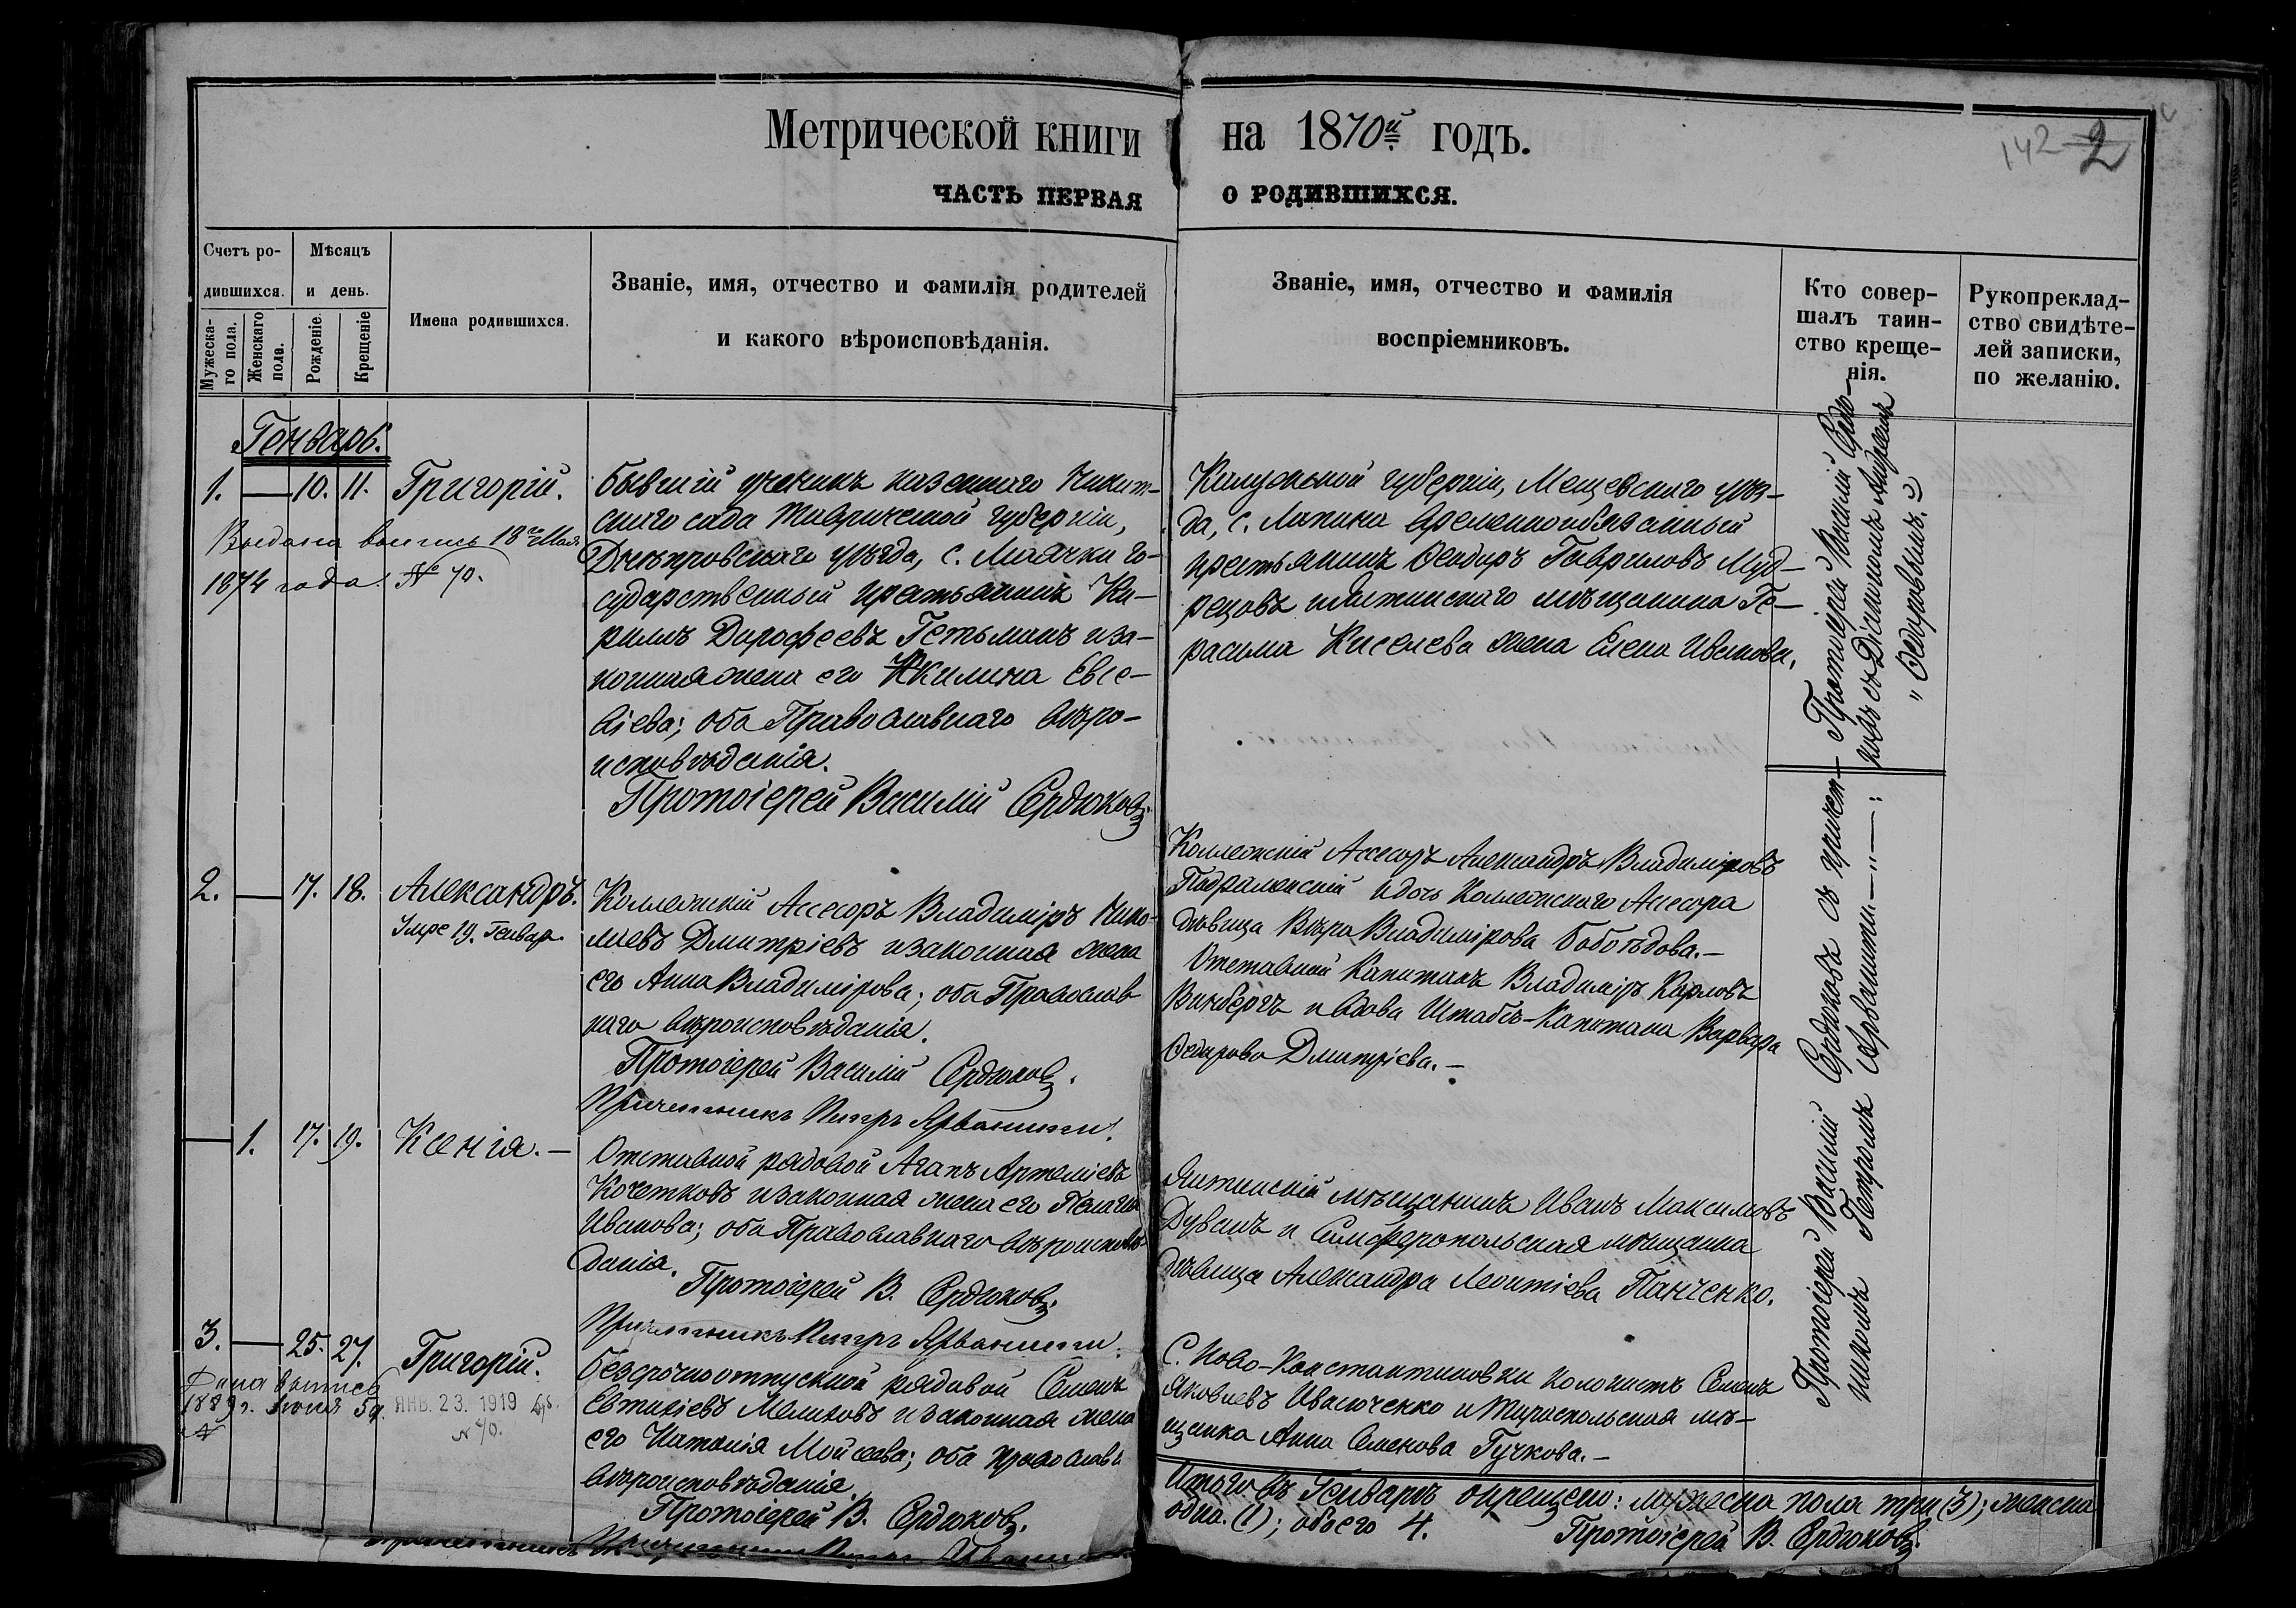 Метрической книги на 1870й годъ.
142 2
ЧАСТЬ ПЕРВАЯ О РОДИВШИХСЯ.
Счетъ ро-
дившихся.
Мужеска-
го пола.
Женскаго
пола.
Мѣсяцъ
и день.
Рожденіе.
Крещеніе
Имена родившихся.
Званіе, имя, отчество и фамилія родителей
и какого вѣроисповѣданія.
Званіе, имя, отчество и фамилія
воспріемниковъ.
Кто совер-
шалъ таин-
ство креще-
нія.
Рукоприклад-
ство свидѣте-
лей записки,
по желанію.
Генварь.
1. — 10. 11. Григорій.
Выдана выпись 18го Мая
1874 года № 70.
Бывшій ученикъ казеннаго Никит-
скаго сада Таврической губерніи,
Днѣпровскаго уѣзда, с. Маячки го-
сударственный крестьянинъ Ки-
рилъ Дорофеевъ Гетьманъ и за-
конная жена его Акилина Евсе-
віева; оба Православнаго вѣро-
исповѣданія.
Протоіерей Василій Сердюковъ.
Калужской губерніи, Мещевскаго уѣз-
да, с. Лапина временнообязанный
крестьянинъ Ѳеодоръ Гавриловъ Муд-
рецовъ и Ялтинскаго мѣщанина Ге-
расима Киселева жена Елена Иванова.
Протоіерей Василій Сердю-
ковъ съ Діакономъ Андреемъ
Ѳедоровымъ.
2. — 17. 18. Александръ.
Умре 19. Генвар.
Коллежскій Ассесоръ Владиміръ Нико-
лаевъ Дмитріевъ и законная жена
его Анна Владимірова; оба Православ
наго вѣроисповѣданія.
Протоіерей Василій Сердюковъ.
Причетникъ Петръ Арванити.
Коллежскій Ассесоръ Александръ Владиміровъ
и дочь Коллежскаго Ассесора
дѣвица Вѣра Владимірова Бобоѣдова.—
Отставной Капитанъ Владиміръ Карловъ
Винбергъ и вдова Штабсъ-Капитана Варвара
Ѳедорова Дмитріева.—
Протоіерей Василій Сердюковъ съ причет-
никомъ Петромъ Арванити — " — :
— 1. 17. 19. Ксенія. —
Отставной рядовой Агапъ Артеміевъ
Кочетковъ и законная жена его Пелагія
Иванова; оба Православнаго вѣроисповѣ-
данія.
Протоіерей В. Сердюковъ.
Причетникъ Петръ Арванити.
Ялтинскій мѣщанинъ Иванъ Максимовъ
Дуванъ и Симферопольская мѣщанка
дѣвица Александра Леонтіева Панченко.
3. — 25. 27. Григорій.
Дана выпись
1889 г. Іюня 5 д.
№
ЯНВ. 23. 1919
№ 70.
Безсрочноотпускной рядовой Семенъ
Евтихіевъ Мелиховъ и законная жена
его Наталія Мойсеева; оба православ
вѣроисповѣданія.
Протоіерей В. Сердюковъ.
Причетникъ Петръ Арванити
С. Ново-Константиновки колонистъ Семенъ
Яковлевъ Ивасюченко и Тираспольская мѣ-
щанка Анна Семенова Гучкова.—
Итого въ Генварѣ окрещено: мужеска пола три (3); женска
одна. (1); обоего 4.
Протоіерей В. Сердюковъ.